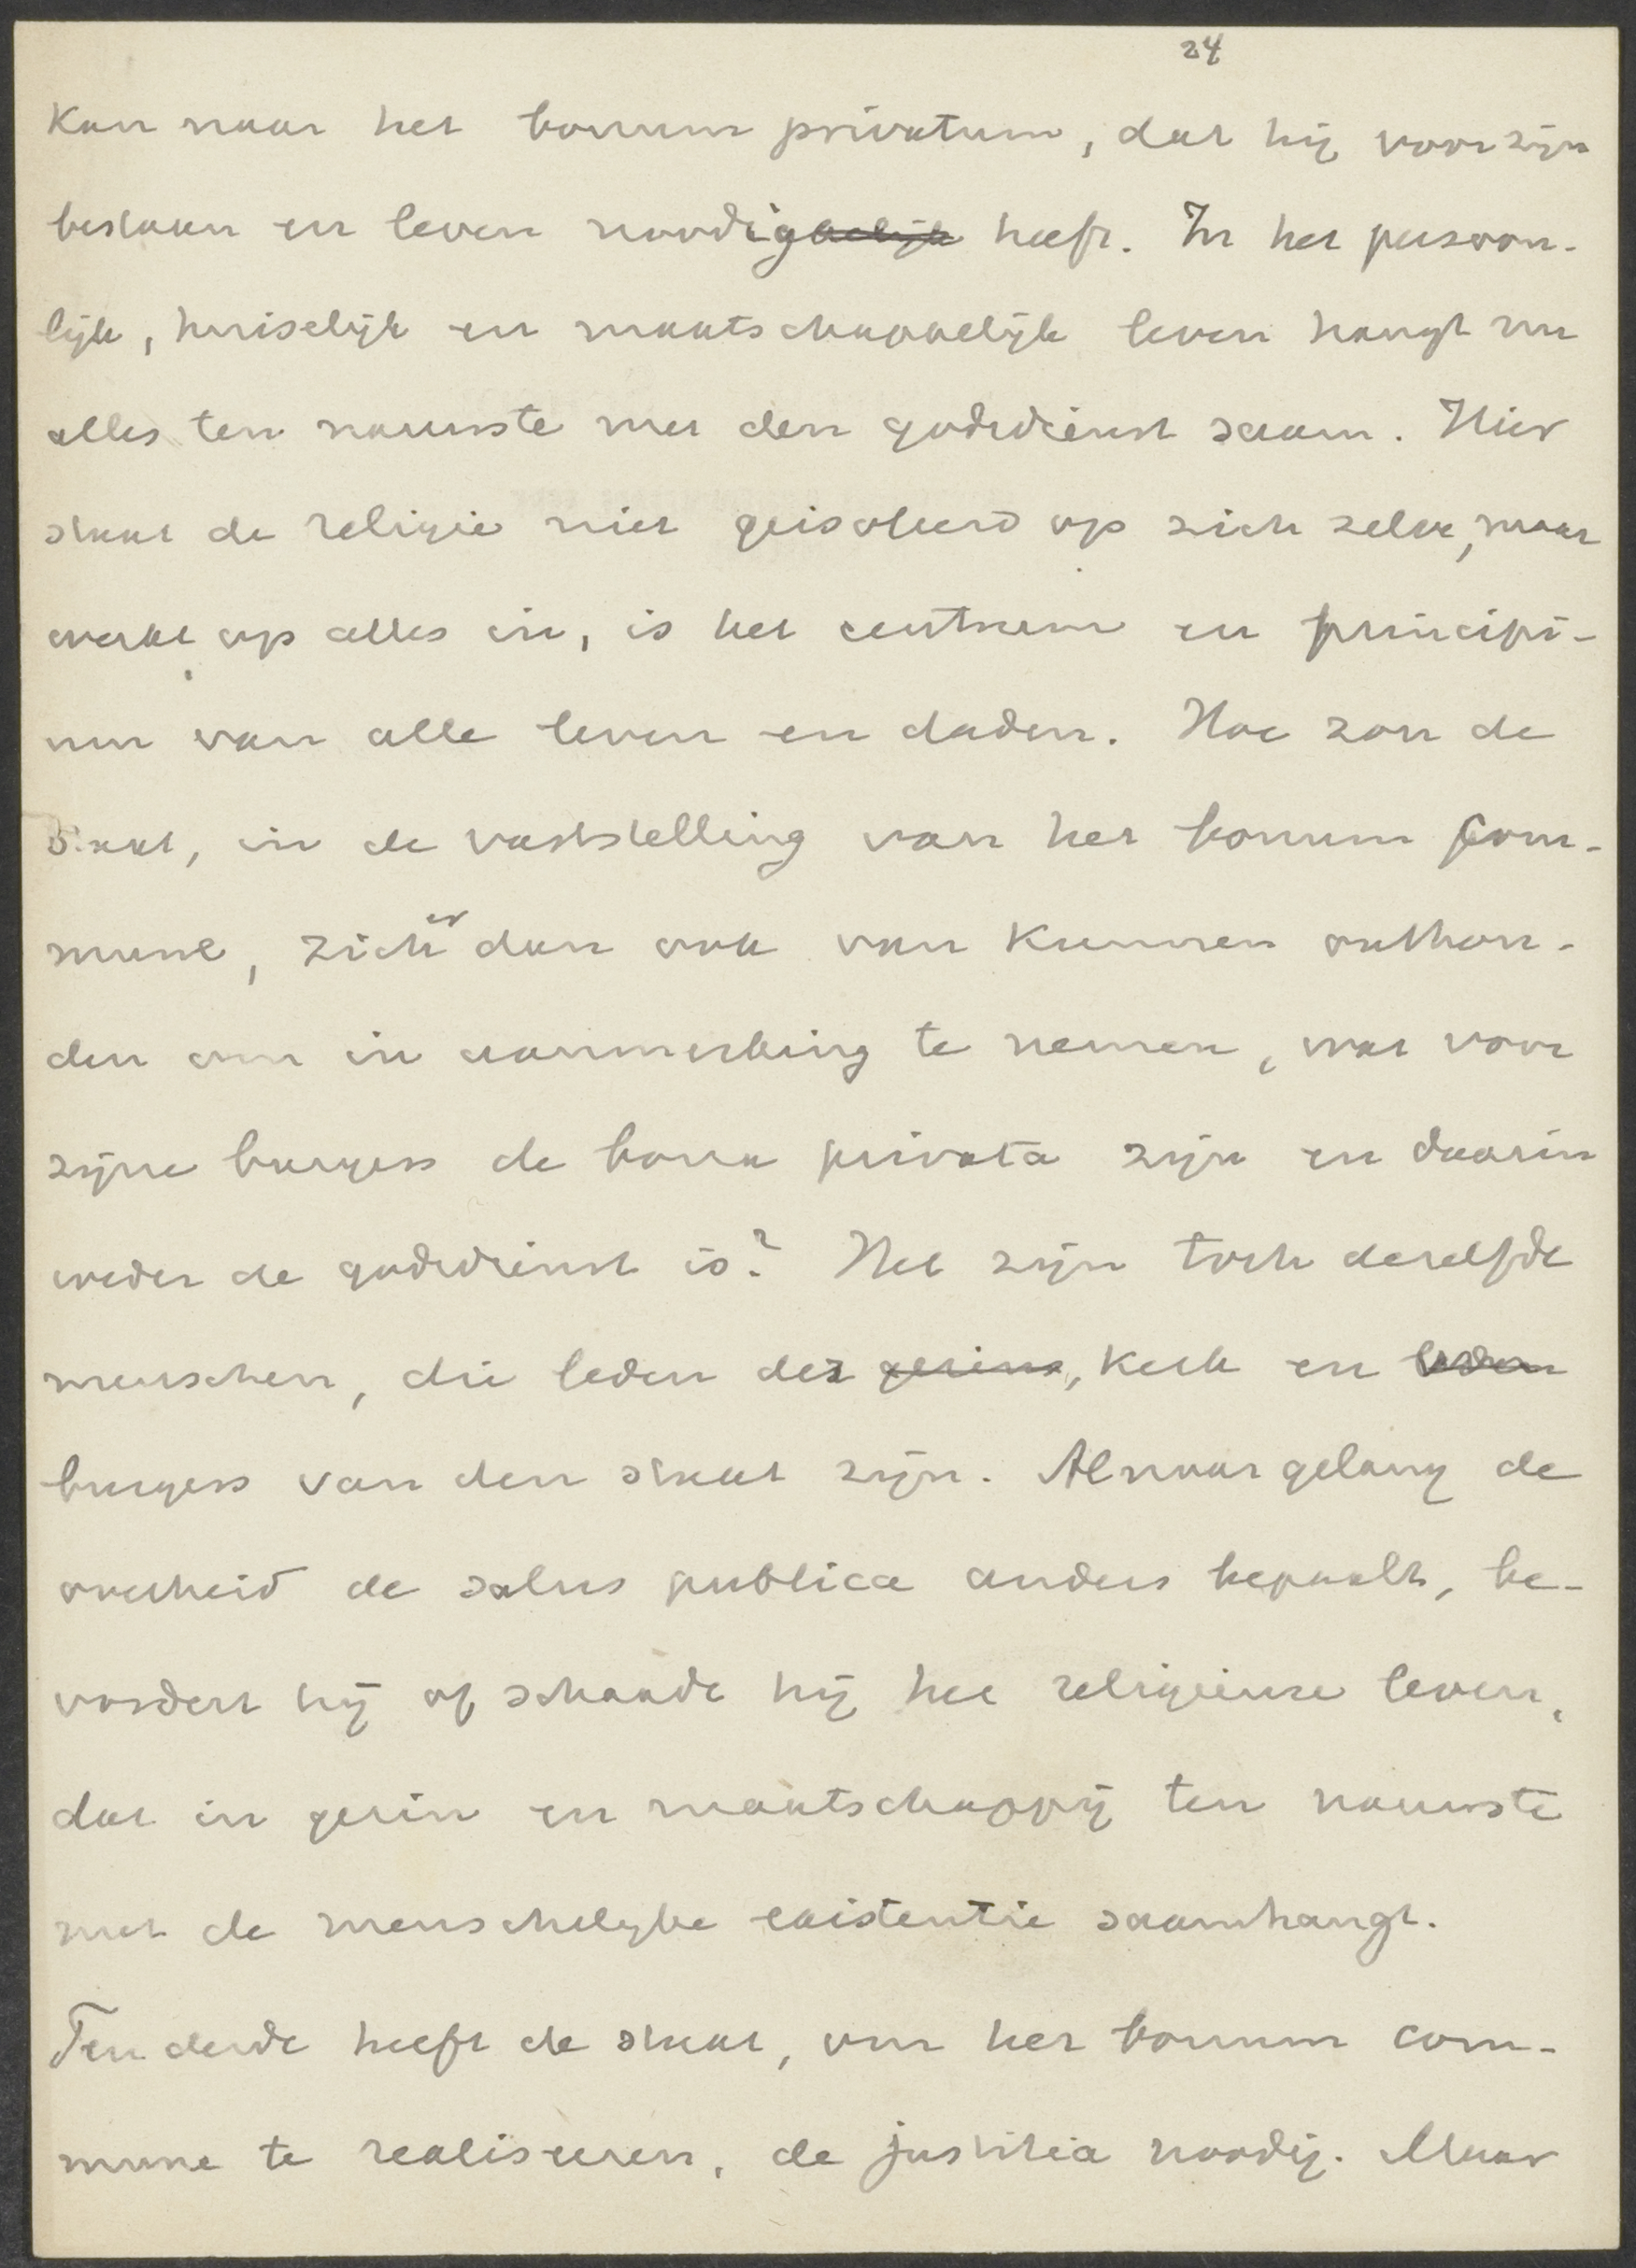 24
kan naar het bonum privatum, dat hij voor zijn
bestaan en leven noodig heeft. In het persoon-
lijk, huiselijk en maatschappelijk leven hangt nu
alles ten nauwste met den godsdienst saam. Hier
staat de religie niet geisoleerd op zich zelve, maar
werkt op alles in, is het centrum en principi-
um van alle leven en daden. Hoe zou de
Staat, in de vaststelling van het bonum com-
mune, zich er dan ook van kunnen onthou-
den om in aanmerking te nemen, wat voor
zijne burgers de bona privata zijn en daarin
weder de godsdienst is? Het zijn toch dezelfde
menschen, die leden der gezins, kerk en leden
burgers van den staat zijn. Al naar gelang de
overheid de salus publica anders bepaalt, be-
vordert hij of schaadt hij het religieuze leven,
dat in gezin en maatschappij ten nauwste
met de menschelijke existentie saamhangt.
Ten derde heeft de staat, om het bonum com-
mune te realiseeren, de justitia noodig. Maar